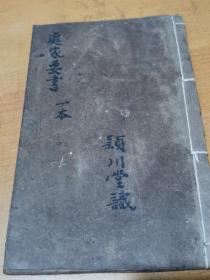 處家要書
一本
潁川堂識